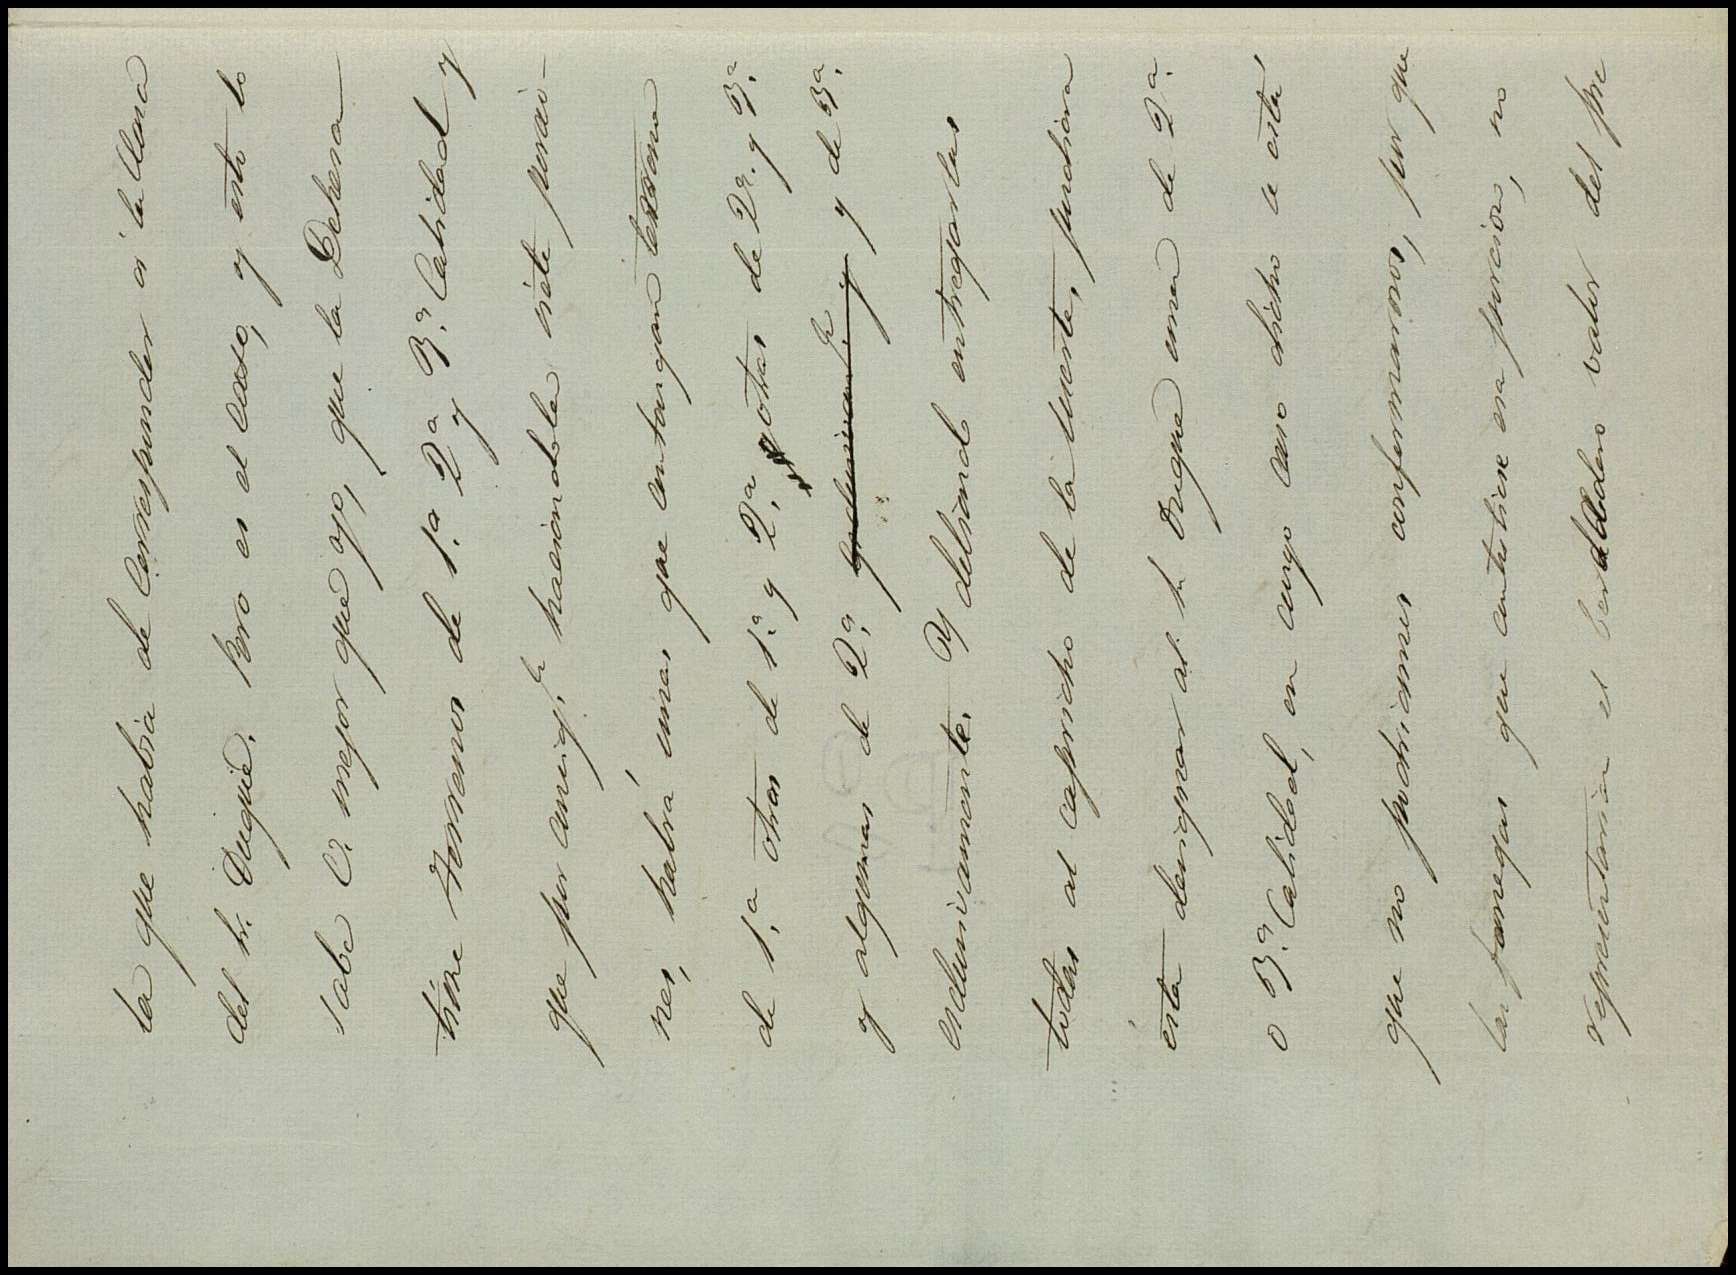 la que habria de corresponder a la Casa
del Sr. Duque. Pero es el caso, y esto lo
sabe V. mejor que yo, que la Dehesa
tiene terrenos de 1.ª 2.ª y 3.ª Calidad y
que por consig.te haciendola siete porcio-
nes, habrá unas que contengan terreno
de 1.ª otras de 1.ª y 2.ª otras de 2.ª y 3.ª
y algunas de 2.ª y de 3.ª
esclusivamente. Y debiendo entregarlas
todas al capricho de la suerte, pudiera
ésta designar al Sr. Duque una de 2.ª
o 3.ª Calidad, en cuyo caso dicho se está
que no podriamos conformarnos, por que
las fanegas que contubiese esa porcion, no
representarian el berdadero valor del pre